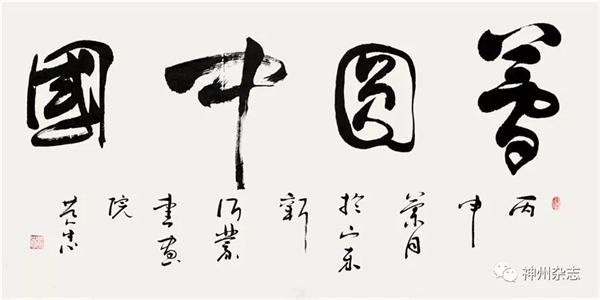 夢圓中國
丙申 月於山東新沂蒙書畫院
神州杂志